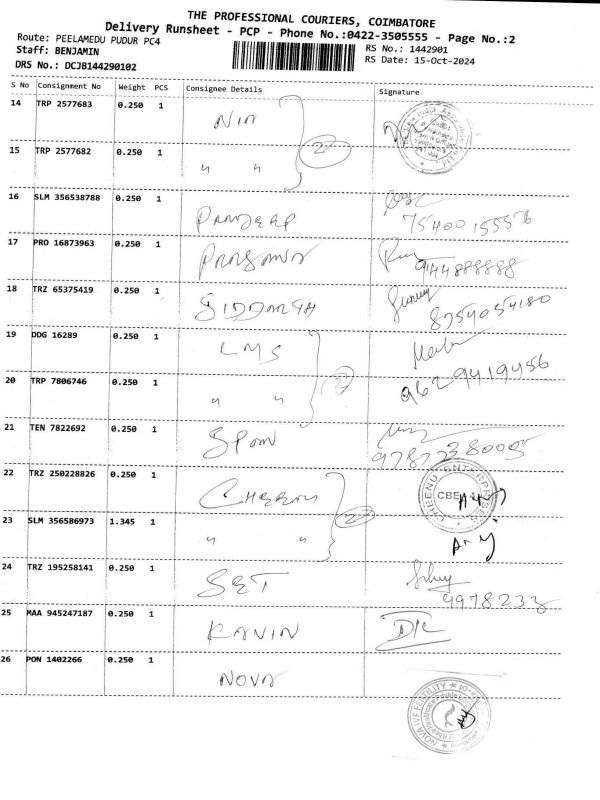 THE PROFESSIONAL COURIERS, COIMBATORE
Delivery Runsheet - PCP - Phone No.:0422-3505555 - Page No.:2
Route: PEELAMEDU PUDUR PC4
RS No.: 1442901
Staff: BENJAMIN
RS Date: 15-Oct-2024
DRS No.: DCJB144290102
S No Consignment No Weight PCS Consignee Details Signature
14 TRP 2577683 0.250 1 NIA
15 TRP 2577682 0.250 1 " "
2
16 SLM 356538788 0.250 1 PRADEEP
75400155576
17 PRO 16873963 0.250 1 PRASANA
9144888888
18 TRZ 65375419 0.250 1 SIDDARTH
8754054180
19 DDG 16289 0.250 1 LMS
20 TRP 7806746 0.250 1 " "
9629419456
21 TEN 7822692 0.250 1
9787238005
22 TRZ 250228826 0.250 1
CHEENU ENTERPRISES
CBE
23 SLM 356586973 1.345 1 " "
2
24 TRZ 195258141 0.250 1 SET
9978233
25 MAA 945247187 0.250 1 KAVIN
26 PON 1402266 0.250 1 NOVA
NOVA IVF FERTILITY